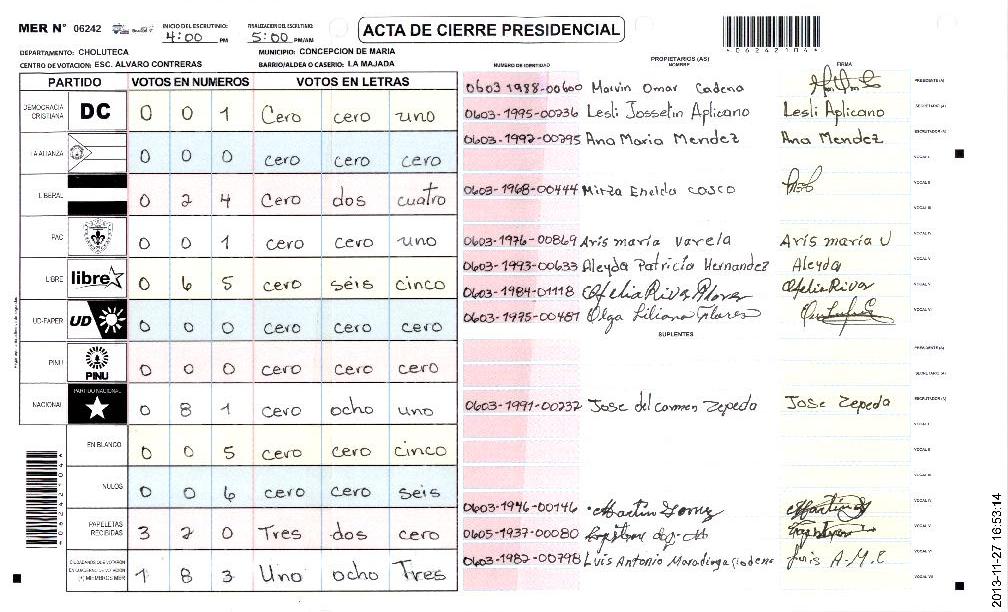 MER N° 06242
INICIO DEL ESCRUTINIO: 4:00 PM
FINALIZACION DEL ESCRUTINIO: 5:00 PM/AM
ACTA DE CIERRE PRESIDENCIAL
*06242104*
DEPARTAMENTO: CHOLUTECA
MUNICIPIO: CONCEPCION DE MARIA
CENTRO DE VOTACION: ESC. ALVARO CONTRERAS
BARRIO/ALDEA O CASERIO: LA MAJADA
PARTIDO VOTOS EN NUMEROS VOTOS EN LETRAS
DEMOCRACIA CRISTIANA DC 0 0 1 Cero cero uno
LA ALIANZA 0 0 0 cero cero cero
LIBERAL 0 2 4 Cero dos cuatro
PAC 0 0 1 cero cero uno
LIBRE libre 0 6 5 cero seis cinco
UD-FAPER UD 0 0 0 cero cero cero
PINU PINU 0 0 0 cero cero cero
NACIONAL PARTIDO NACIONAL 0 8 1 cero ocho uno
EN BLANCO 0 0 5 cero cero cinco
NULOS 0 0 6 cero cero seis
PAPELETAS RECIBIDAS 3 2 0 Tres dos cero
CIUDADANOS QUE VOTARON EN CUADERNO DE VOTACION (+) MIEMBROS MER 1 8 3 Uno ocho Tres
NUMERO DE IDENTIDAD PROPIETARIOS (AS) NOMBRE FIRMA
0603 1988-00600 Marvin Omar Cadena PRESIDENTE(A)
0603-1995-00236 Lesli Jossetin Aplicano Lesli Aplicano SECRETARIO (A)
0603-1992-00295 Ana Maria Mendez Ana Mendez ESCRUTADOR (A)
VOCAL I
0603-1968-00444 Mirza Enelda cosco VOCAL II
VOCAL III
0603-1976-00869 Aris maria varela Aris maria V VOCAL IV
0603-1993-00633 Aleyda Patricia Hernandez Aleyda VOCAL V
0603-1984-01118 Ofelia Rivas OfeliaRivas
0603-1975-00487 Olga Liliana
SUPLENTES
PRESIDENTE (A)
SECRETARIO (A)
0603-1991-00232 Jose del carmen Zepeda Jose Zepeda ESCRUTADOR (A)
VOCAL I
VOCAL II
VOCAL III
0603-1946-00146 Martin Gomez VOCAL IV
0605-1937-00080 VOCAL V
0603-1982-00798 Luis Antonio Luis A.M.C
2013-11-27 16:53:14